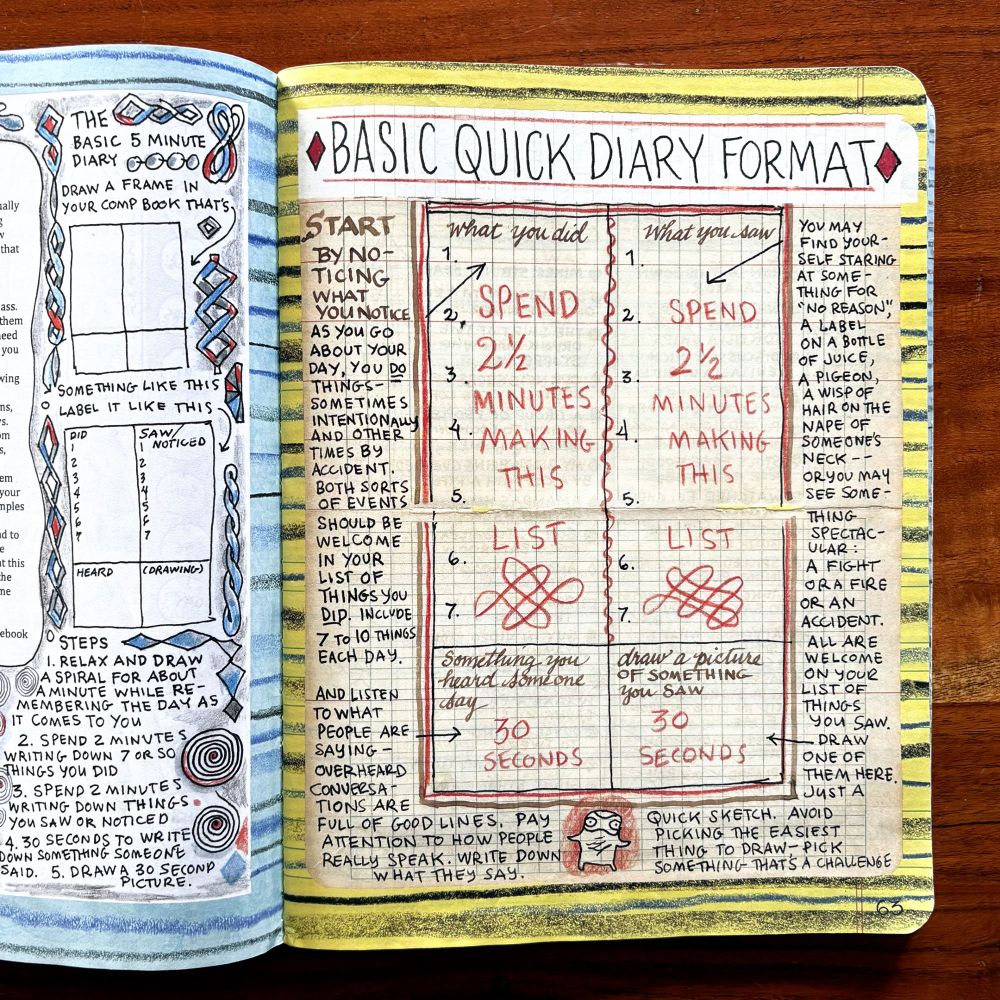 ually
g
w
that
ass.
them
need
you
wing
ns,
vs.
om
s,
em
your
mples
nd to
e
at this
the
me
tebook
THE
BASIC 5 MINUTE
DIARY
DRAW A FRAME IN
YOUR COMP BOOK THAT'S
SOMETHING LIKE THIS
LABEL IT LIKE THIS
DID
1
2
3
4
5
6
7
SAW/
NOTICED
1
2
3
4
5
6
7
HEARD
(DRAWING)
STEPS
1. RELAX AND DRAW
A SPIRAL FOR ABOUT
A MINUTE WHILE RE-
MEMBERING THE DAY AS
IT COMES TO YOU
2. SPEND 2 MINUTES
WRITING DOWN 7 OR SO
THINGS YOU DID
3. SPEND 2 MINUTES
WRITING DOWN THINGS
YOU SAW OR NOTICED
4. 30 SECONDS TO WRITE
DOWN SOMETHING SOMEONE
SAID. 5. DRAW A 30 SECOND
PICTURE.
BASIC QUICK DIARY FORMAT
START
BY NO-
TICING
WHAT
YOU NOTICE
AS YOU GO
ABOUT YOUR
DAY, YOU DO
THINGS-
SOMETIMES
INTENTIONALLY
AND OTHER
TIMES BY
ACCIDENT.
BOTH SORTS
OF EVENTS
SHOULD BE
WELCOME
IN YOUR
LIST OF
THINGS YOU
DID. INCLUDE
7 TO 10 THINGS
EACH DAY.
AND LISTEN
TO WHAT
PEOPLE ARE
SAYING-
OVERHEARD
CONVERSA-
TIONS ARE
FULL OF GOOD LINES. PAY
ATTENTION TO HOW PEOPLE
REALLY SPEAK. WRITE DOWN
WHAT THEY SAY.
what you did
1.
2.
3.
4.
5.
6.
7.
SPEND
2½
MINUTES
MAKING
THIS
LIST
What you saw
1.
2.
3.
4.
5.
6.
7.
SPEND
2½
MINUTES
MAKING
THIS
LIST
Something you
heard someone
say
30
SECONDS
draw a picture
OF SOMETHING
YOU SAW
30
SECONDS
YOU MAY
FIND YOUR-
SELF STARING
AT SOME-
THING FOR
"NO REASON",
A LABEL
ON A BOTTLE
OF JUICE,
A PIGEON,
A WISP OF
HAIR ON THE
NAPE OF
SOMEONE'S
NECK--
OR YOU MAY
SEE SOME-
THING
SPECTAC-
ULAR:
A FIGHT
OR A FIRE
OR AN
ACCIDENT.
ALL ARE
WELCOME
ON YOUR
LIST OF
THINGS
YOU SAW.
DRAW
ONE OF
THEM HERE.
JUST A
QUICK SKETCH. AVOID
PICKING THE EASIEST
THING TO DRAW-PICK
SOMETHING THAT'S A CHALLENGE
63